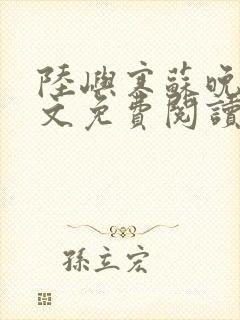 陸嶼寒蘇晚
文免費閱讀
孫立宏